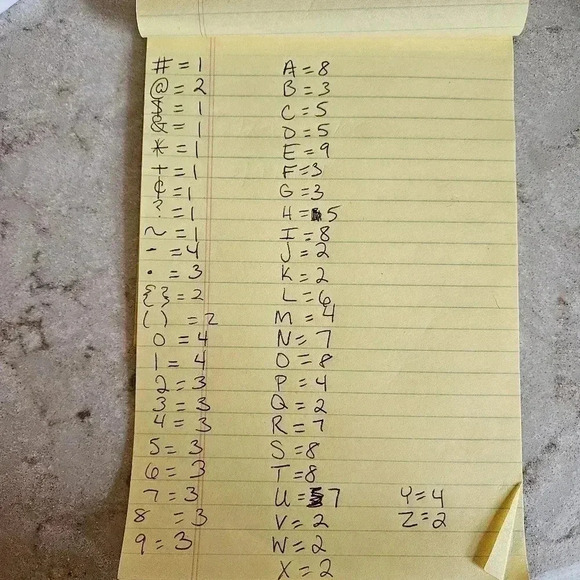 # = 1
@ = 2
$ = 1
& = 1
* = 1
+ = 1
¢ = 1
? = 1
~ = 1
- = 4
. = 3
{ } = 2
( ) = 2
0 = 4
1 = 4
2 = 3
3 = 3
4 = 3
5 = 3
6 = 3
7 = 3
8 = 3
9 = 3
A = 8
B = 3
C = 5
D = 5
E = 9
F = 3
G = 3
H = 5
I = 8
J = 2
K = 2
L = 6
M = 4
N = 7
O = 8
P = 4
Q = 2
R = 7
S = 8
T = 8
U = 7
V = 2
W = 2
X = 2
Y = 4
Z = 2